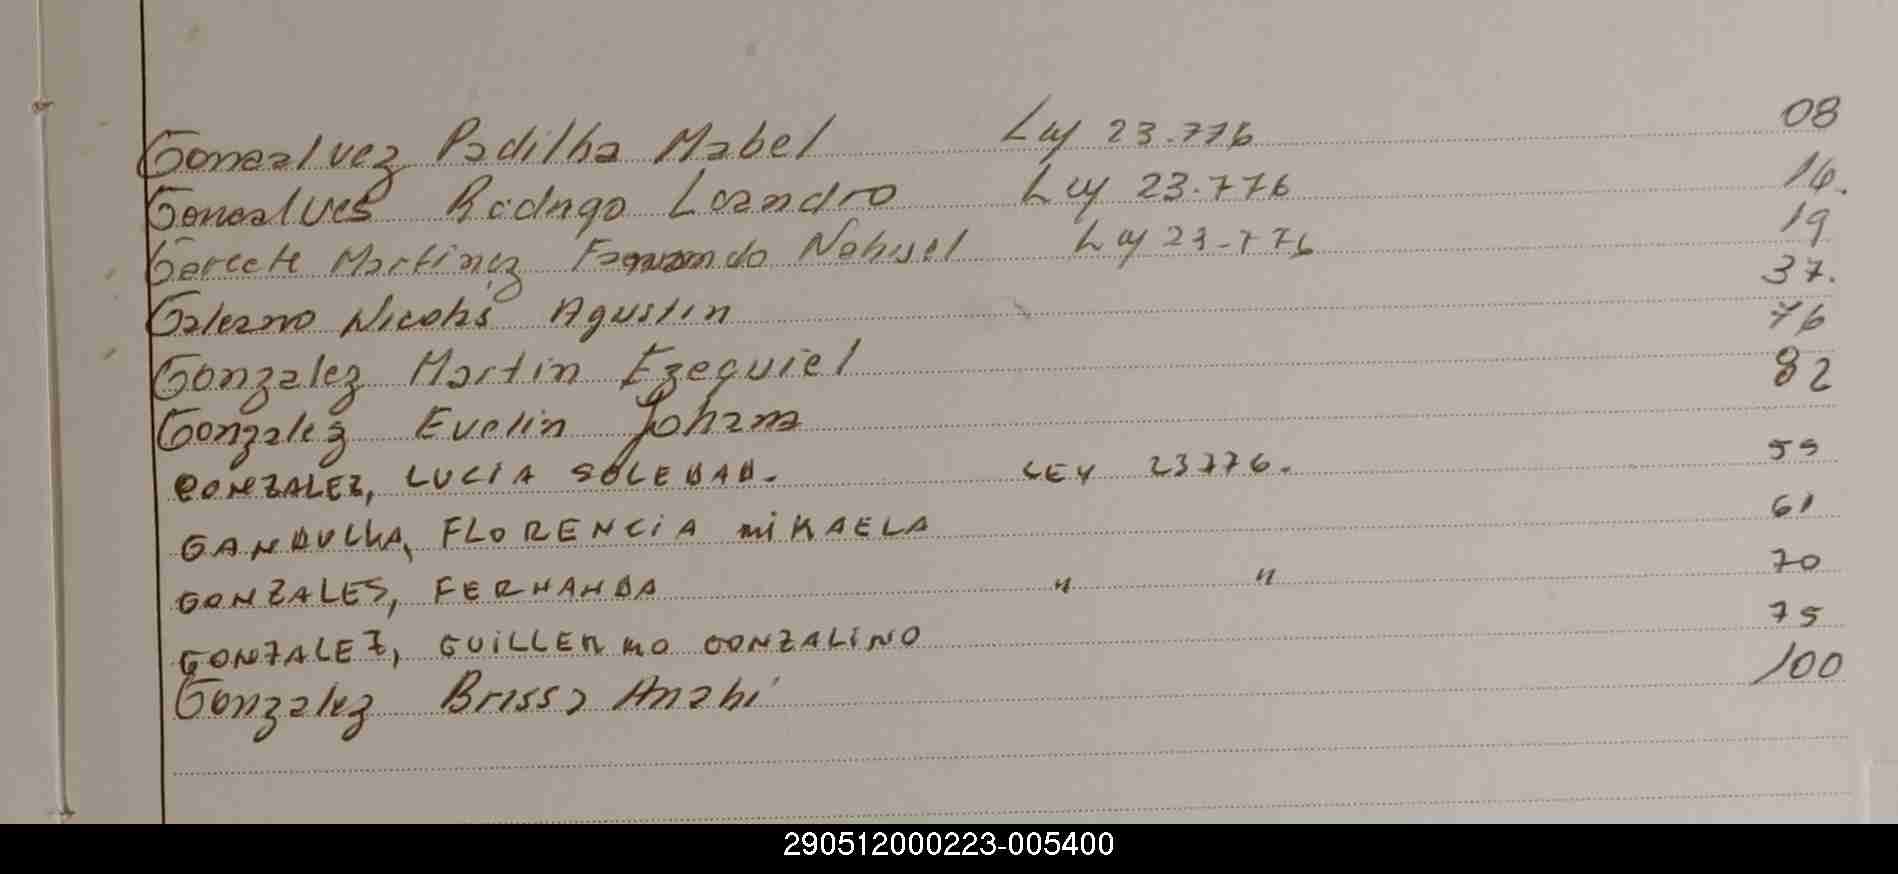 Goncalvez Padilha Mabel Ley 23.776 08
Goncalves Rodrigo Leandro Ley 23.776 14.
Gercete Martinez Fernando Nahuel Ley 23-776 19
Galeano Nicolás Agustin 37.
Gonzalez Martin Ezequiel 76
Gonzalez Evelin Johana 82
GONZALEZ, LUCIA SOLEDAD. LEY 23776. 55
GANDULLA, FLORENCIA MIKAELA 61
GONZALES, FERNANDA " " 70
GONZALEZ, GUILLERMO GONZALINO 75
Gonzalez Brissa Anahi 100
290512000223-005400